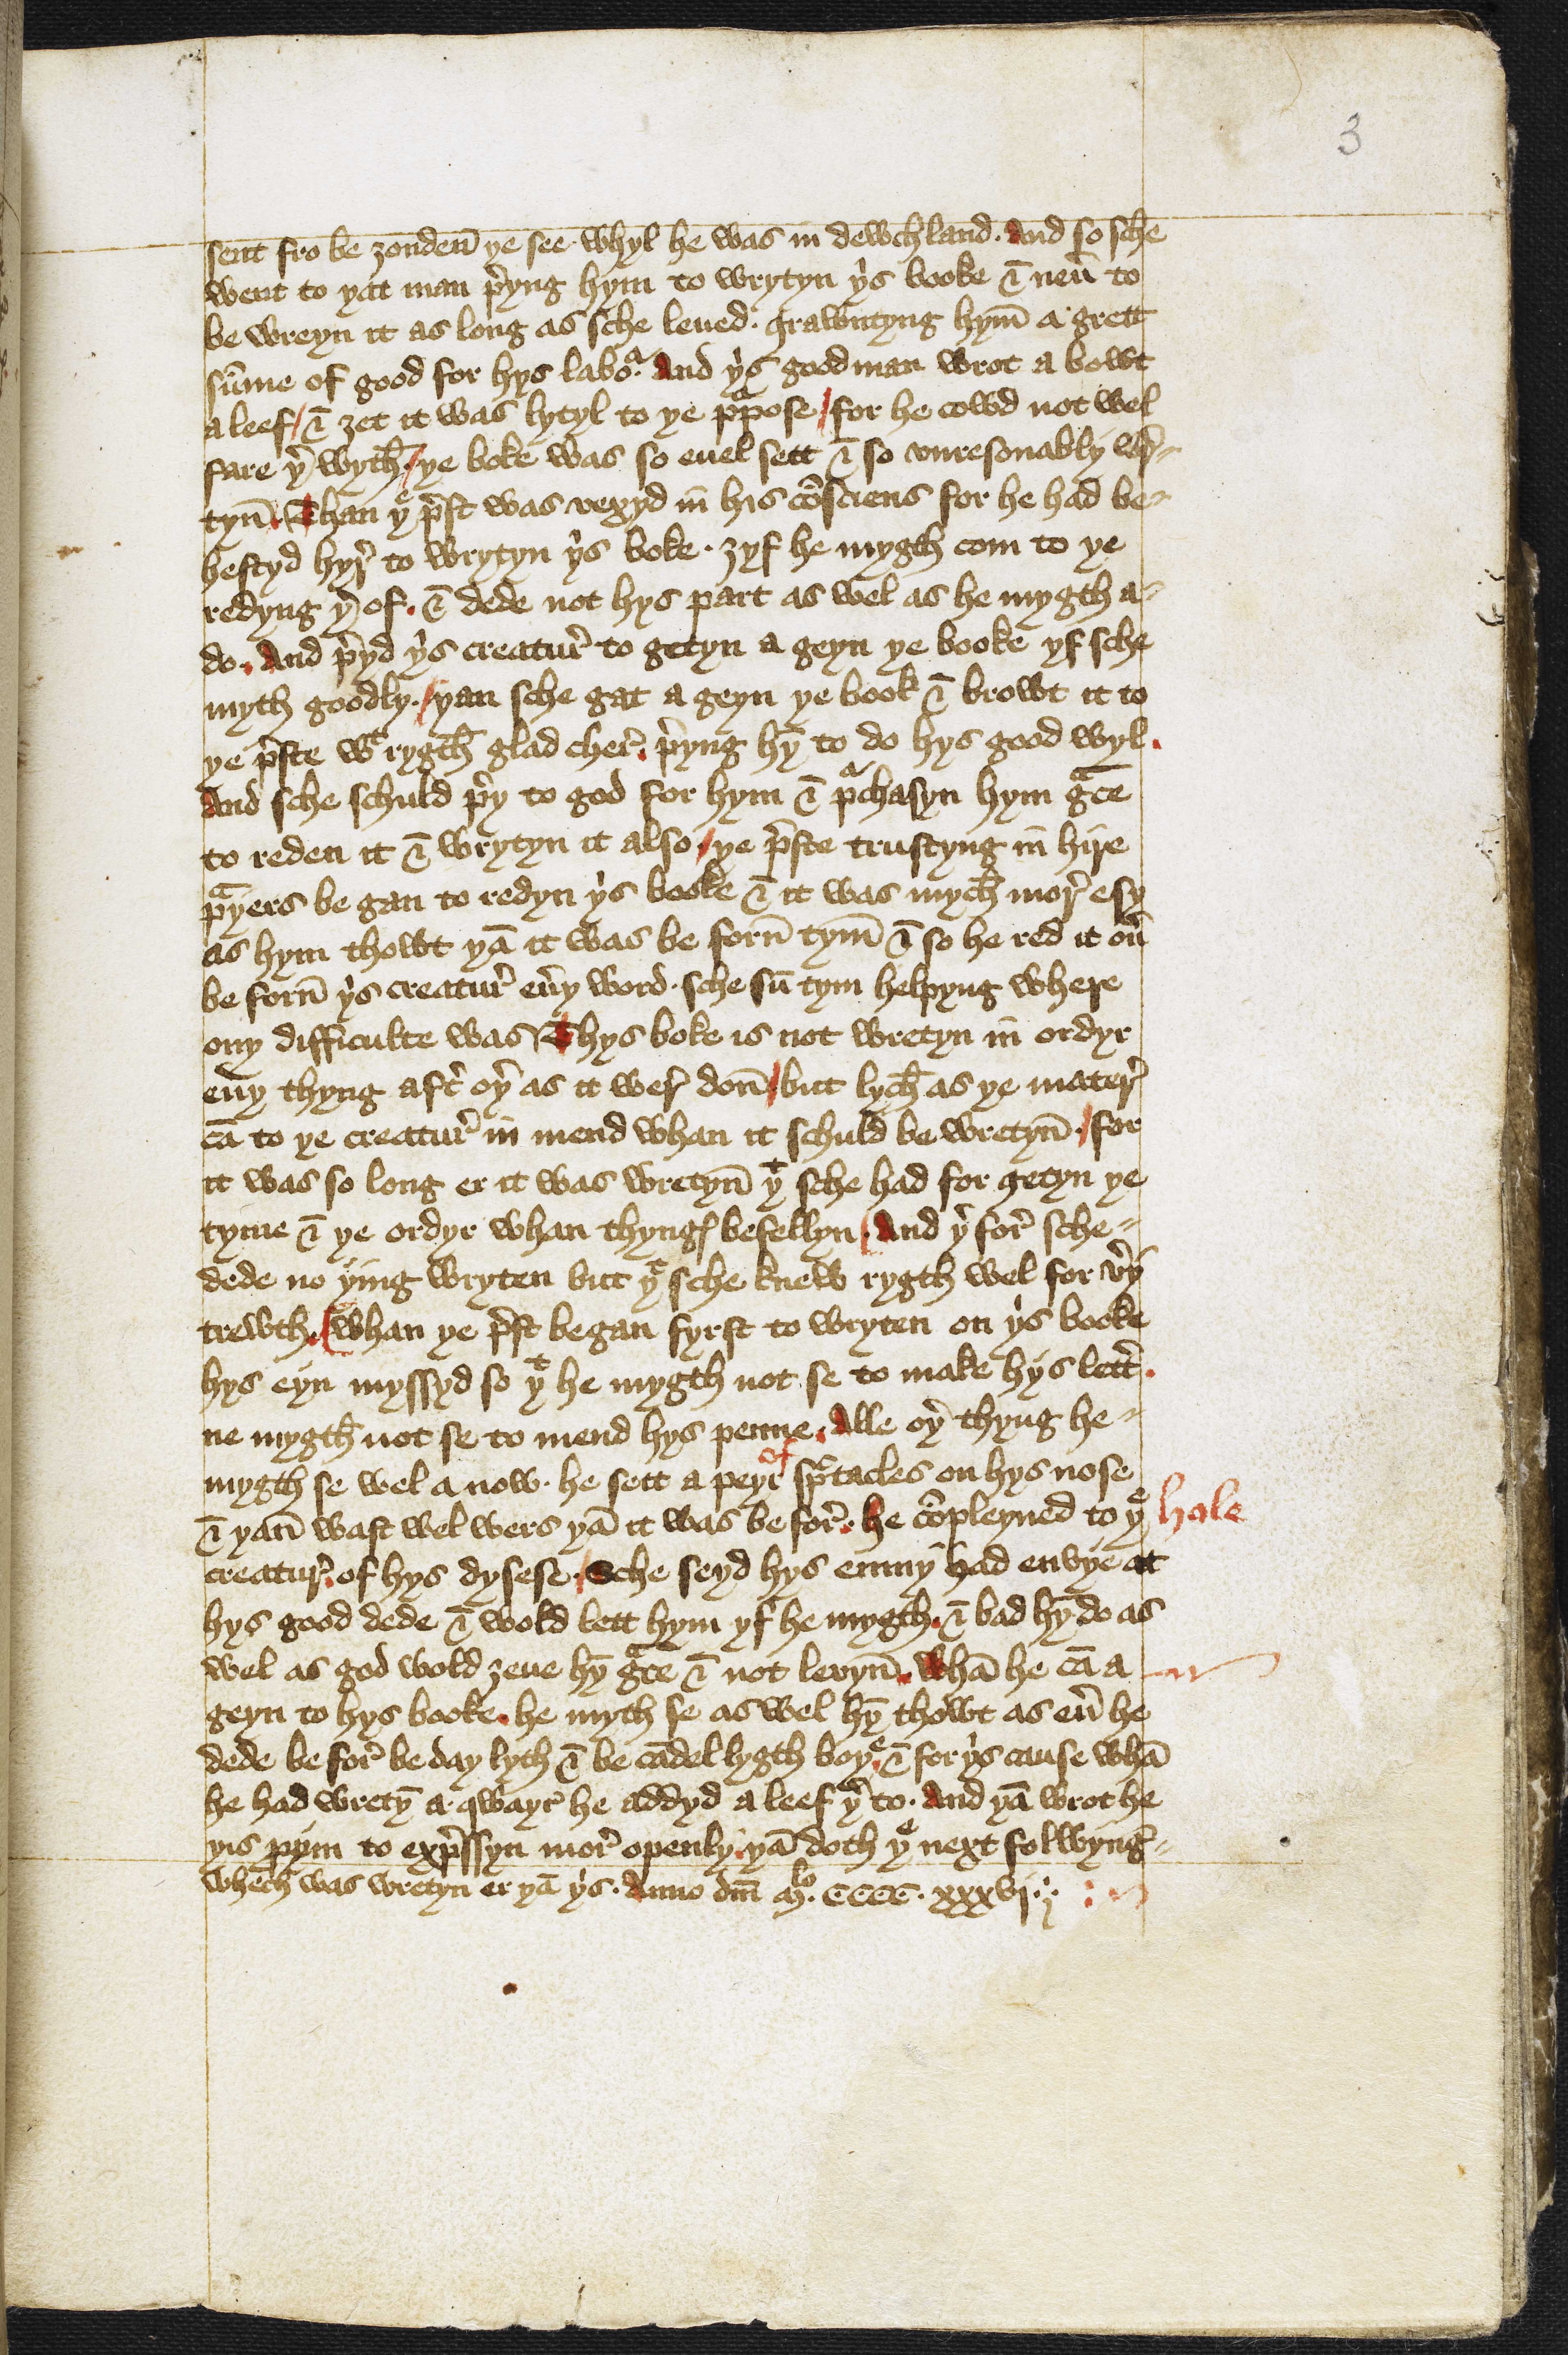 3
sent fro be zonden̄ ye see · whyl he was in dewchland · And so sche
went to yat man p̄yng hym to wrytyn yis booke & neu̅ to
be wreyn it as long as sche leued · grawntyng hym̄ a grett
sūme of good for hys laboᵃ · And yis good man wrot a bowt
a leef / & zet it was lytyl to ye pᵃpose / for he cowd not wel
fare y̓ wyth̄ · / ye boke was so euel sett & so vnresonably wre-
tyn̄ · Than yᵉ p̄st was vexyd in his cōsciens for he had be-
hestyd hyr̄ to wrytyn yⁱs boke · zyf he mygth com to ye
redyng y̓ of · & dede not hys part as wel as he mygth a-
do · And p̄yd yⁱs creatur̄ to getyn a geyn ye booke yf sche
myth goodly · / yan sche gat a geyn ye book & browt it to
ye p̄ste wᵗ rygth̄ glad cher̄ · p̄yng hȳ to do hys good wyl ·
And sche schuld p̄y to god for hym & pᵃchasyn hym gᵃce
to reden it & wrytyn it also · / ye p̄ste trustyng in hire
pᵃyers be gan to redyn yⁱs booke & it was mych̄ mor̄ esy
as hym thowt yā it was be forn̄ tym̄ & so he red it ou̅
be forn̄ yⁱs creatur̄ eu̅y word · sche sū tym helpyng where
ony difficulte was Thys boke is not wretyn in ordyr
eu̅y thyng aft̄ oy̓ as it wer̄ don̄ / but lych̄ as ye mater̄
cā to ye creatur̄ in mend whan it schuld be wretyn̄ · / for
it was so long er it was wretyn̄ yᵗ sche had for getyn ye
tyme & ye ordyr whan thyngꝭ befellyn · And y̓ for̄ sche-
dede no ying wryten but yᵗ sche knew rygth wel for v̄y
trewth · / whan ye p̄st began fyrst to wryten on yⁱs booke
hys eyn myssyd so yᵗ he mygth not se to make hys lett̄ ·
ne mygth̄ not se to mend hys penne · Alle oy̓ thyng he-
mygth se wel a now · he sett a peyr of spᵉtacles on hys nose
& yan̄ wast wel wers yā it was be for̄ · he cōpleyned to yᵉ hole
creatur̄ · of hys dysese · / Sche seyd hys enmy had envye at
hys good dede & wold lett hym yf he mygth · & bad hȳ do as
wel as god wold zeue hȳ gᵃce & not levyn̄ · Whā he cā a
geyn to hys booke · he myth se as wel hȳ thowt as eu̅ he
dede be for̄ be day lyth & be cādel lygth boyᵉ · & for yⁱs cause whā
he had wretȳ a qwayr he addyd a leef y̓ to · And yā wrot he
yis pym to exp̄ssyn mor̄ openly yā doth yᵉ next folwyng-
whech̄ was wretyn er yā yⁱs · Anno dn̄i Mˡᵒ · CCCC · xxxvj ·